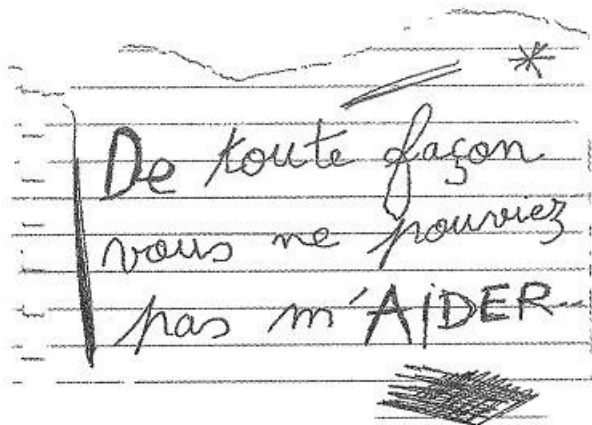 De toute façon
vous ne pouviez
pas m'AiDER